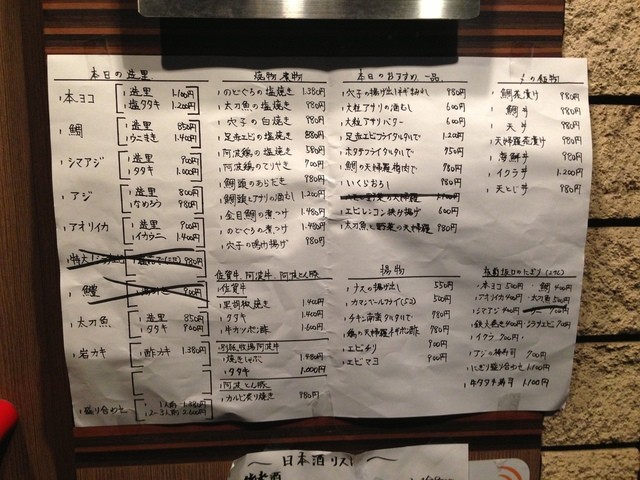 本日の造里
本ヨコ 造里 1.100円
塩タタキ 1.200円
鯛 造里 850円
うにまき 1.400円
シマアジ 造里 900円
タタキ 1.000円
アジ 造里 800円
なめろう 980円
アオリイカ 造里 900円
イカウニ 1.400円
特大 980円
鱧 900円
太刀魚 造里 850円
タタキ 900円
岩カキ 酢カキ 1.380円
盛り合わせ 1人前
2~3人前
焼物 煮物
のどぐろの塩焼き 1.380円
太刀魚の塩焼き 980円
穴子の白焼き 980円
足赤エビの塩焼き 880円
阿波鶏の塩焼き 580円
阿波鶏のてりやき 700円
鯛頭のあらだき 980円
鯛頭とアサリの酒むし 1.200円
金目鯛の煮つけ 1.480円
のどぐろの煮つけ 1.480円
穴子の鳴門揚げ 980円
佐賀牛、阿波牛、阿波とん豚
佐賀牛
黒胡椒焼き 1.400円
タタキ 1.400円
牛カツポン酢 1.600円
別飯牧場阿波牛
焼きしゃぶ 1.480円
タタキ 1.000円
阿波とん豚
カルビ炙り焼き 980円
本日のおすすめ一品
穴子の揚げ出し 980円
大粒アサリの酒むし 600円
大粒アサリバター 600円
足赤エビフライタルタルで 1.200円
ホタテフライタルタルで 950円
鯛の天婦羅梅肉で 980円
いくらおろし 980円
野菜の天婦羅 1.100円
エビレンコン挟み揚げ 600円
太刀魚と野菜の天婦羅 980円
揚物
ナスの揚げ出し 550円
カマンベールフライ(5コ) 500円
チキン南蛮タルタルで 980円
鶏の天婦羅ネギポン酢 980円
エビチリ 900円
エビマヨ 900円
〆の飯物
鯛茶漬け 980円
鯛丼 980円
天丼 980円
天婦羅茶漬け 980円
海鮮丼 980円
イクラ丼 1.200円
天とじ丼 980円
板前坂口のにぎり(2カン)
本ヨコ 500円 鯛 400円
アオリイカ 400円 太刀魚 500円
シマアジ 400円 700円
鉄火巻き 900円 トロサエビ 700円
イクラ 700円
アジの棒寿司 900円
にぎり盛り合わせ 1.100円
牛タタキ寿司 1.100円
~日本酒リスト~